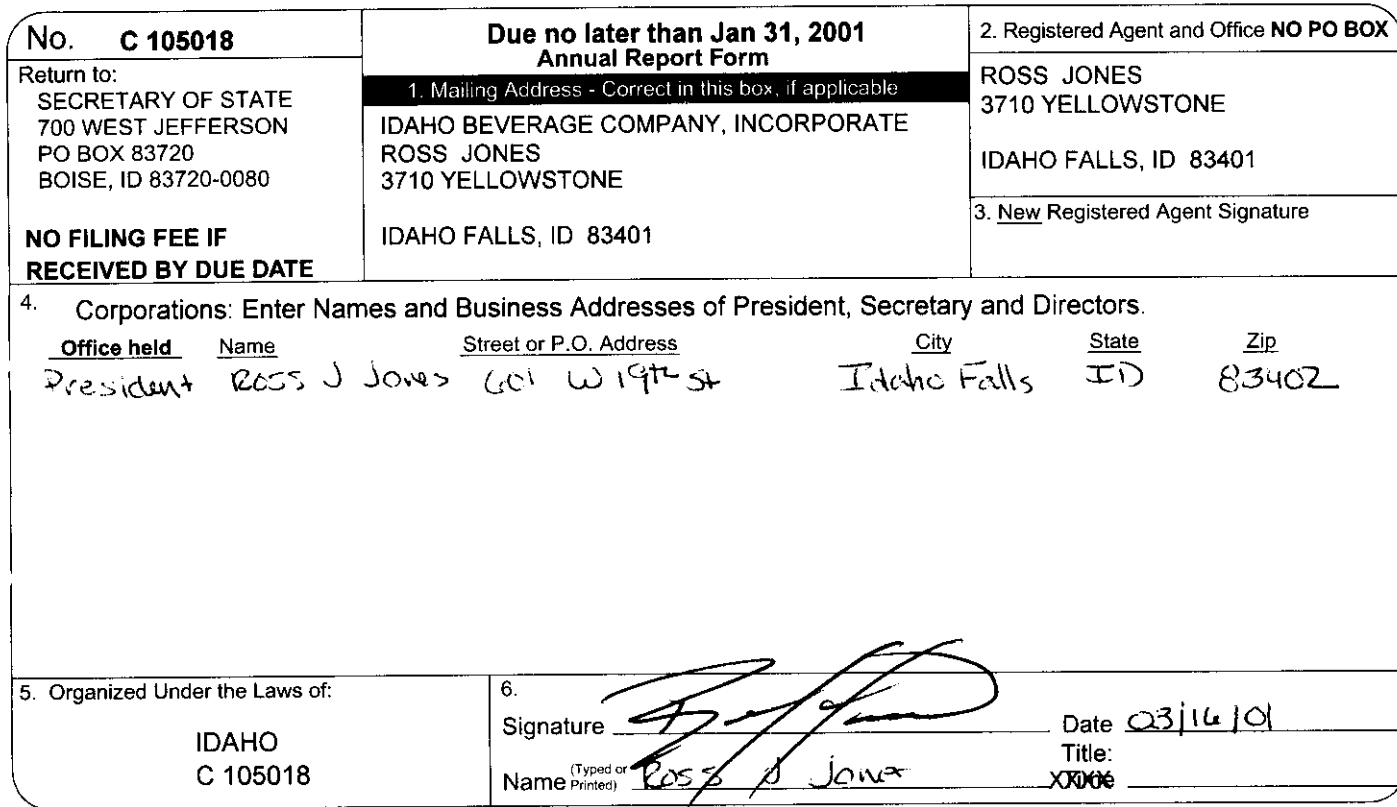 No. C 105018
Return to:
SECRETARY OF STATE
700 WEST JEFFERSON
PO BOX 83720
BOISE, ID 83720-0080
NO FILING FEE IF
RECEIVED BY DUE DATE
Due no later than Jan 31, 2001
Annual Report Form
1. Mailing Address - Correct in this box, if applicable
IDAHO BEVERAGE COMPANY, INCORPORATE
ROSS JONES
3710 YELLOWSTONE
IDAHO FALLS, ID 83401
2. Registered Agent and Office NO PO BOX
ROSS JONES
3710 YELLOWSTONE
IDAHO FALLS, ID 83401
3. New Registered Agent Signature
4. Corporations: Enter Names and Business Addresses of President, Secretary and Directors.
Office held Name Street or P.O. Address City State Zip
President Ross J Jones 601 W 19th St Idaho Falls ID 83402
5. Organized Under the Laws of:
IDAHO
C 105018
6.
Signature Date 03/16/01
Name (Typed or Printed) Ross J Jones Title: